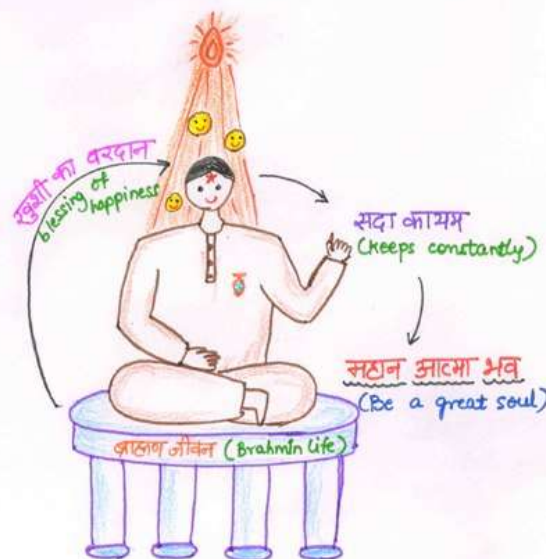 खुशी का वरदान
blessing of
happiness
सदा कायम
(keeps constantly)
महान आत्मा भव
(Be a great soul)
ब्राह्मण जीवन (Brahmin life)